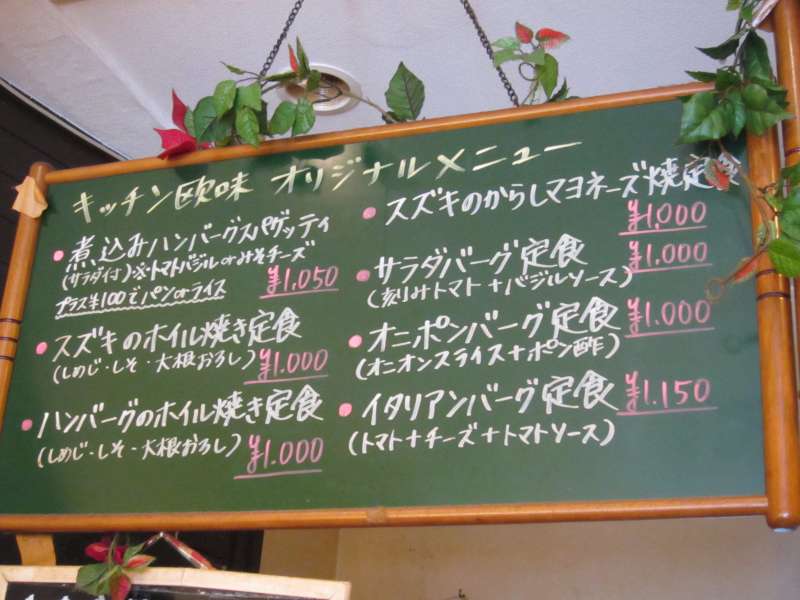 キッチン欧味 オリジナルメニュー
・煮込みハンバーグスパゲッティ
(サラダ付)※トマトバジルorみそチーズ
プラス¥100でパンorライス ¥1.050
・スズキのホイル焼き定食
(しめじ・しそ・大根おろし) ¥1.000
・ハンバーグのホイル焼き定食
(しめじ・しそ・大根おろし) ¥1.000
・スズキのからしマヨネーズ焼定食
¥1,000
・サラダバーグ定食 ¥1.000
(刻みトマト+バジルソース)
・オニポンバーグ定食 ¥1.000
(オニオンスライス+ポン酢)
・イタリアンバーグ定食 ¥1.150
(トマト+チーズ+トマトソース)